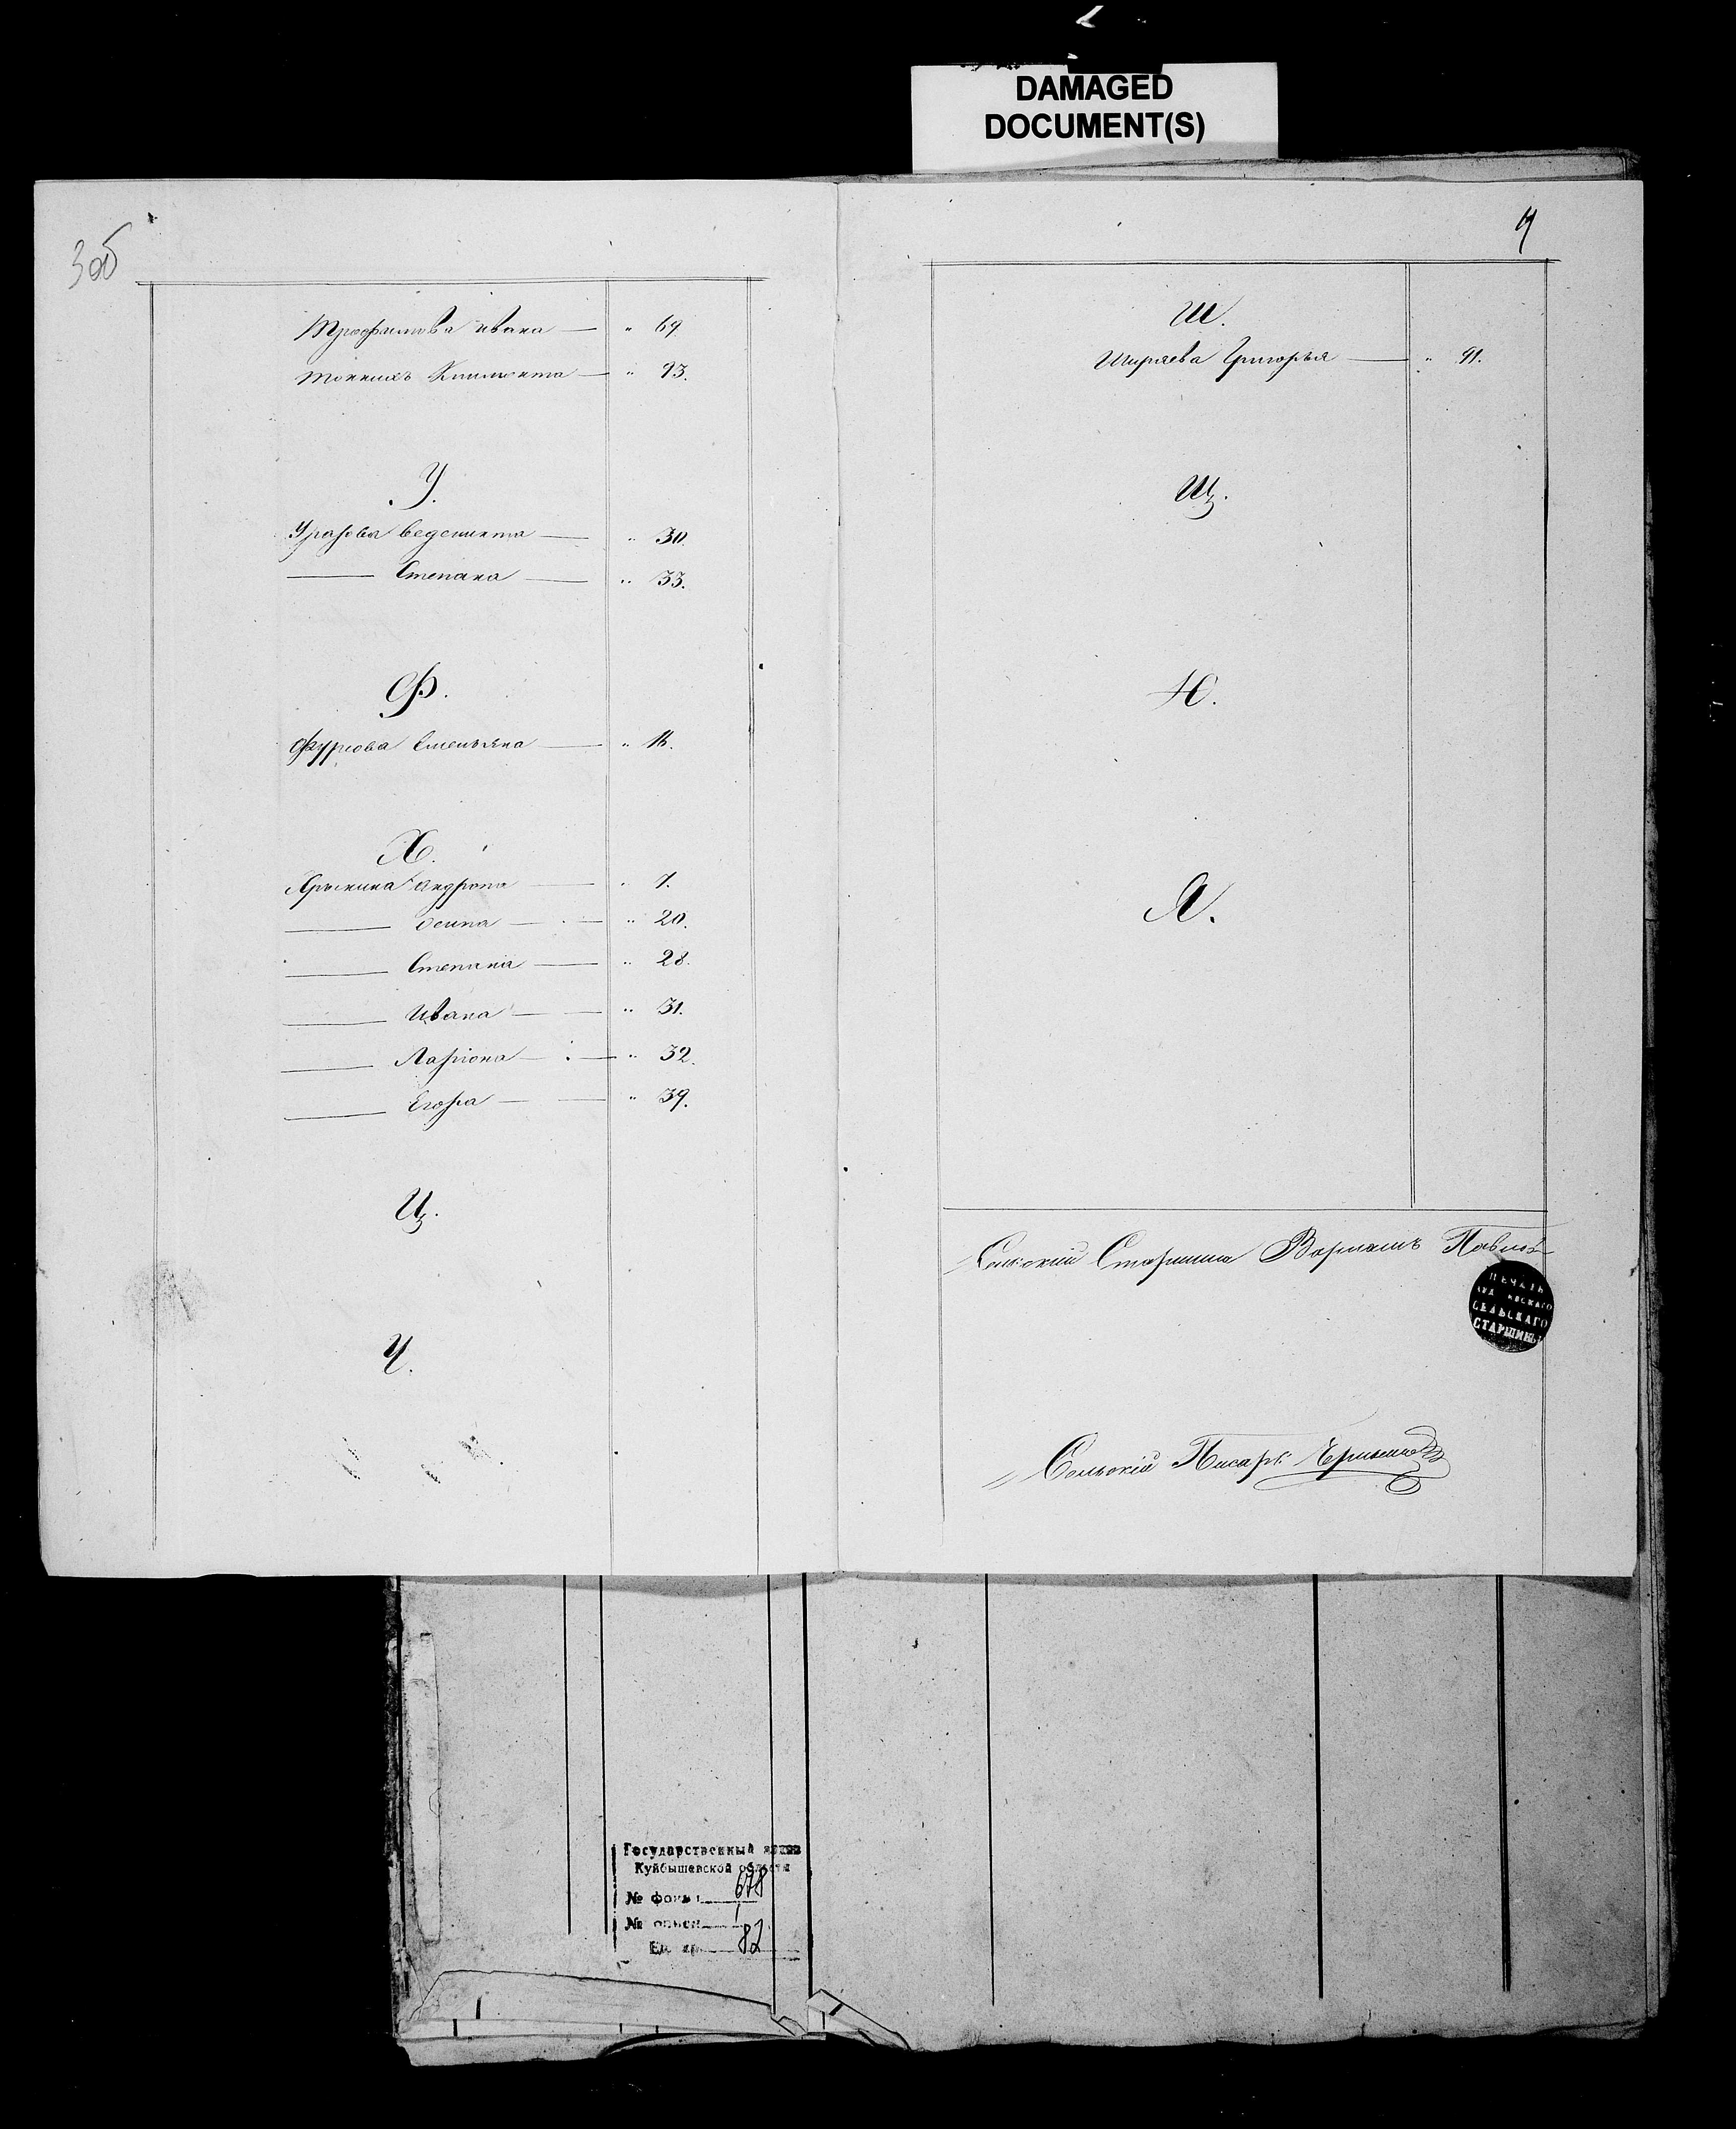 DAMAGED
DOCUMENT(S)
3об
Трофимова Ивана — " 69.
Тонкихъ Климента — " 93.
У.
Уразова Веденикта — " 30.
— Степана — " 33.
Ф.
Фурсова Емельяна — " 16.
Х.
Андрона — " 7.
— Осипа — " 20.
— Степана — " 28.
— Ивана — " 31.
— Лариона — " 32.
— Егора — " 39.
Ц.
Ч.
4
Ш.
Ширяева Григорья — " 91.
Щ.
Ю.
Я.
Сельский Старшина Павлов
ПЕЧАТЬ
СЕЛЬСКАГО
СТАРШИНЫ
Сельский Писарь
Государственный архив
Куйбышевской области
№ фонда 678
№ описи 1
Ед. хр. 82